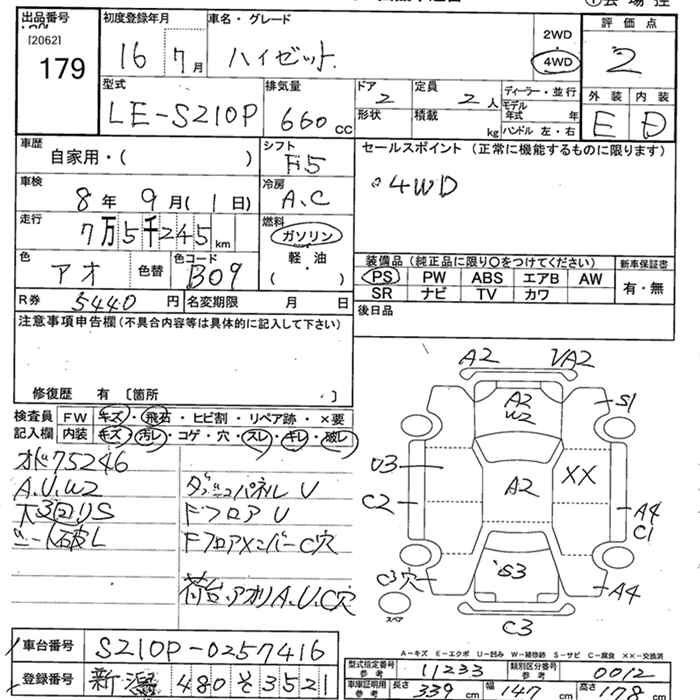 出品番号 初度登録年月 車名・グレード 評価点
[2062] 179 16年 7月 ハイゼット 2WD 4WD 2
型式 排気量 ドア 定員 ディーラー・並行 外装 内装
LE-S210P 660cc 2 2人 モデル年式 年 E D
形状 積載 kg ハンドル 左・右
車歴 自家用・( ) シフト F5 セールスポイント (正常に機能するものに限ります)
車検 8年 9月( 1日) 冷房 A.C 。4WD
走行 7万5千245km 燃料 ガソリン・軽・油 ( )
色 アオ 色替 色コード B09 装備品 (純正品に限り○をつけてください) 新車保証書
PS PW ABS エアB AW 有・無
SR ナビ TV カワ
R券 5440円 名変期限 月 日 後日品
注意事項申告欄(不具合内容等は具体的に記入して下さい)
修復歴 有 〔箇所 . 〕
検査員 FW キズ・飛石・ヒビ割・リペア跡・×要
記入欄 内装 キズ・汚レ・コゲ・穴・スレ・キレ・破レ
水ﾊﾞ75246
A.U.W2 ダッシュパネル U
下回りS Fフロア U
シート破レ FフロアメンバーC穴
荷台.アオリA.U.C穴
A2 VA2
A2 W2 S1
U3 XX
C2 A2 A4 C1
C3穴 S3 A4
スペア C3
A-キズ E-エクボ U-凹み W-補修跡 S-サビ C-腐食 XX-交換済
車台番号 S210P-0257416 型式指定番号 参考 11233 類別区分番号 参考 0012
登録番号 新潟 480 そ 3521 車庫証明用 参考 長さ 339cm 幅 147cm 高さ 178cm